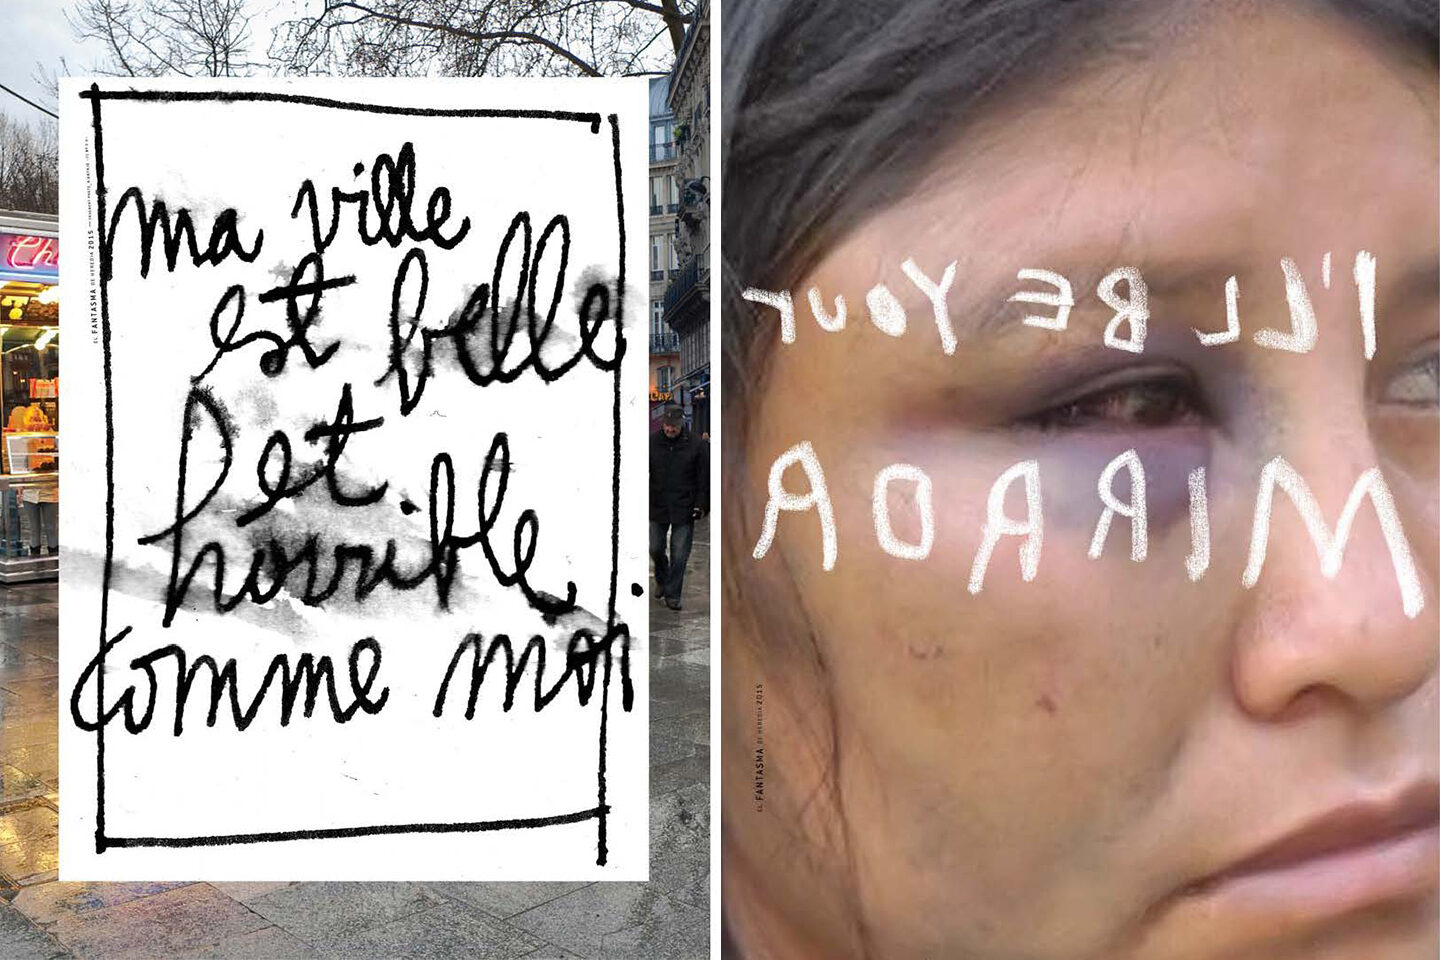 ma ville
est belle
et
horrible.
comme moi
EL FANTASMA DE HEREDIA 2015
Ch
I'LL BE YOUR
MIRROR
EL FANTASMA DE HEREDIA 2015